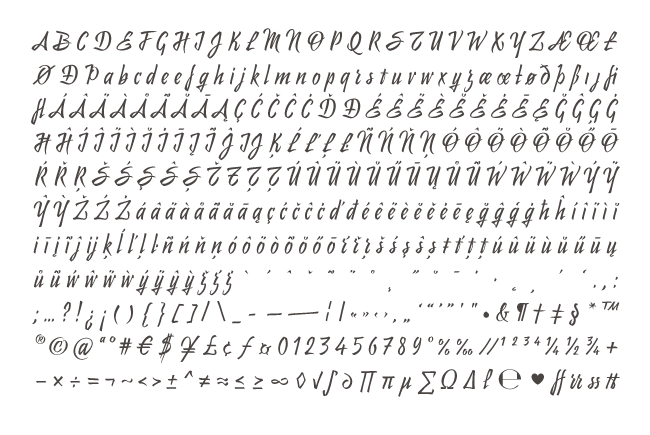 A B C D E F G H I J K L M N O P Q R S T U V W X Y Z Æ Œ Ł
Ø Đ Þ a b c d e e f g h i j k l m n o p q r s t u r w x y z æ œ ł ø ð þ ß ı j fi
fl Á Â Ä À Å Ã Ă Ā Ą Ç Ć Č Ĉ Ċ Ď Đ É Ê Ë È Ě Ė Ē Ę Ğ Ĝ Ģ Ġ
Ħ Ĥ Í Î Ï Ì İ Ī Į Ĩ Ĵ IJ Ķ Ĺ Ľ Ļ Ŀ Ñ Ń Ň Ņ Ó Ô Ö Ò Õ Ő Ō
Ŕ Ř Ŗ Š Ś Ş Ŝ Ș Ť Ţ Ț Ú Û Ü Ù Ŭ Ű Ū Ų Ů Ũ Ẃ Ŵ Ẅ Ẁ Ý Ÿ
Ŷ Ỳ Ž Ź Ż á â ä à å ã ă ā ą ç ć č ĉ ċ ď đ é ê ë è ě ė ē ę ğ ĝ ģ ġ ħ ĥ í î ï ì i
ī į ĩ ĵ ij ķ ĺ ľ ļ ŀ ñ ń ň ņ ó ô ö ò õ ő ō ŕ ř ŗ š ś ş ŝ ș ť ţ ț ú û ü ù ŭ ű ū ų
ů ũ ẃ ŵ ẅ ẁ ý ÿ ŷ ỳ ž ź ż ` ´ ˆ ˇ ˜ ¨ ˚ ¸ ˝ ˘ ¯ · ˙ ˛ , ' ‘ . , :
; … ? ! ¿ ¡ ( ) { } [ ] / \ _ - – — ¦ | « » ‹ › ‚ „ ‘ “ ” ’ ' " • & ¶ † ‡ § * ™
® © @ ª º # € $ ¥ £ ¢ ƒ ¤ 0 1 2 3 4 5 6 7 8 9 ° % ‰ / ⁄ ¹ ² ³ ⁴ ¼ ½ ¾ +
− × ÷ = ¬ ~ < > ± ^ ≠ ≈ ≤ ≥ ∞ ◊ √ ∫ ∂ ∏ π µ ∑ Ω ∆ ℓ ℮ ♥ ff rr ss tt